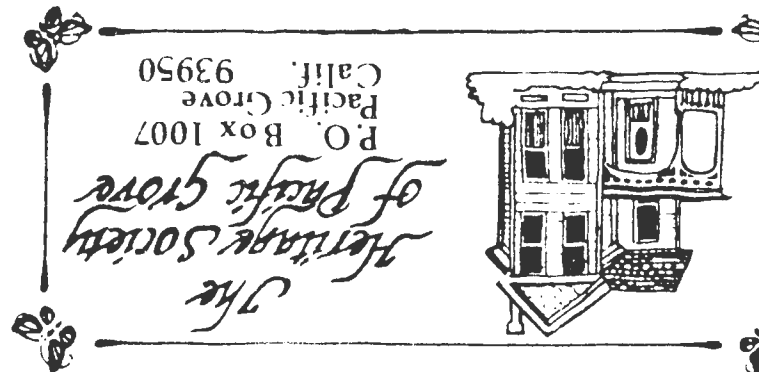 The
Heritage Society
of Pacific Grove
P.O. Box 1007
Pacific Grove
Calif. 93950